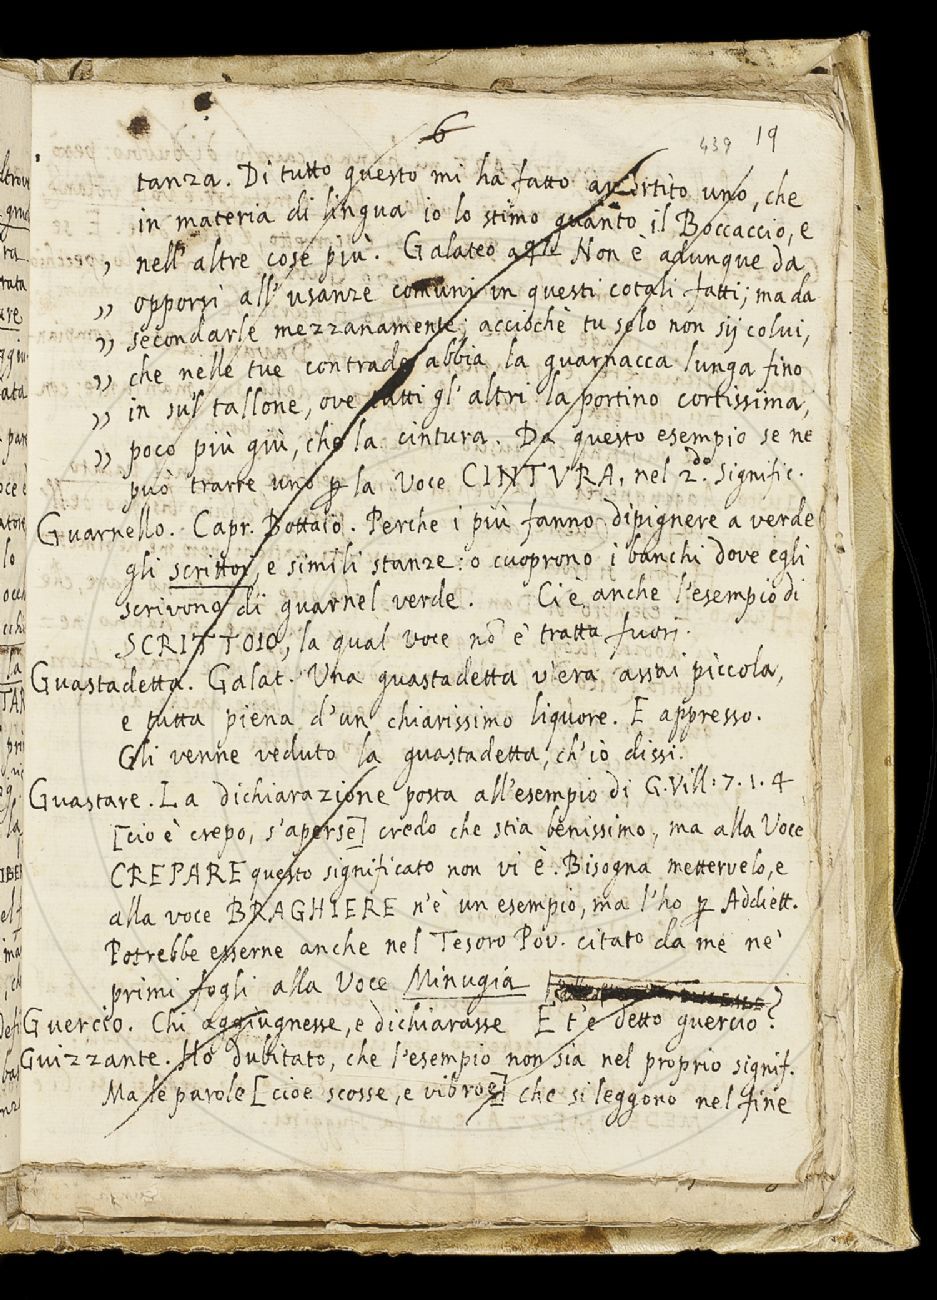 6
439 19
tanza. Di tutto questo mi ha fatto avvertito uno, che
in materia di lingua io lo stimo quanto il Boccaccio, e
„ nell'altre cose più. Galateo Non è adunque da
„ opporsi all'usanze comuni in questi cotali fatti; ma da
„ secondarle mezzanamente; acciochè tu solo non sij colui,
„ che nelle tue contrade abbia la guarnacca lunga fino
„ in sul tallone, ove tutti gl'altri la portino cortissima,
„ poco più giù, che la cintura. Da questo esempio se ne
può trarre uno p la Voce CINTVRA, nel 2.do Signific.
Guarnello. Capr. Bottaio. Perche i più fanno dipignere a verde
gli scrittoi, e simili stanze: o cuoprono i banchi dove egli
scrivono di guarnel verde. Ci è anche l'esempio di
SCRITTOIO, la qual voce nō è tratta fuori.
Guastadetta. Galat. Una guastadetta v'era assai piccola,
e tutta piena d'un chiarissimo liquore. E appresso.
Gli venne veduto la guastadetta, ch'io dissi.
Guastare. La dichiarazione posta all'esempio di G. Vill: 7. 1. 4
[cio è crepo, s'aperse] credo che stia benissimo, ma alla Voce
CREPARE questo significato non vi è. Bisogna mettervelo, e
alla voce BRAGHIERE n'è un esempio, ma l'ho p Addiett.
Potrebbe esserne anche nel Tesoro Pov. citato da me ne'
primi fogli alla Voce Minugia
Guercio. Chi aggiugnesse, e dichiarasse E t'è detto guercio?
Guizzante. Ho dubitato, che l'esempio non sia nel proprio signif.
Ma le parole [cioè scosse, e vibroe] che si leggono nel fine